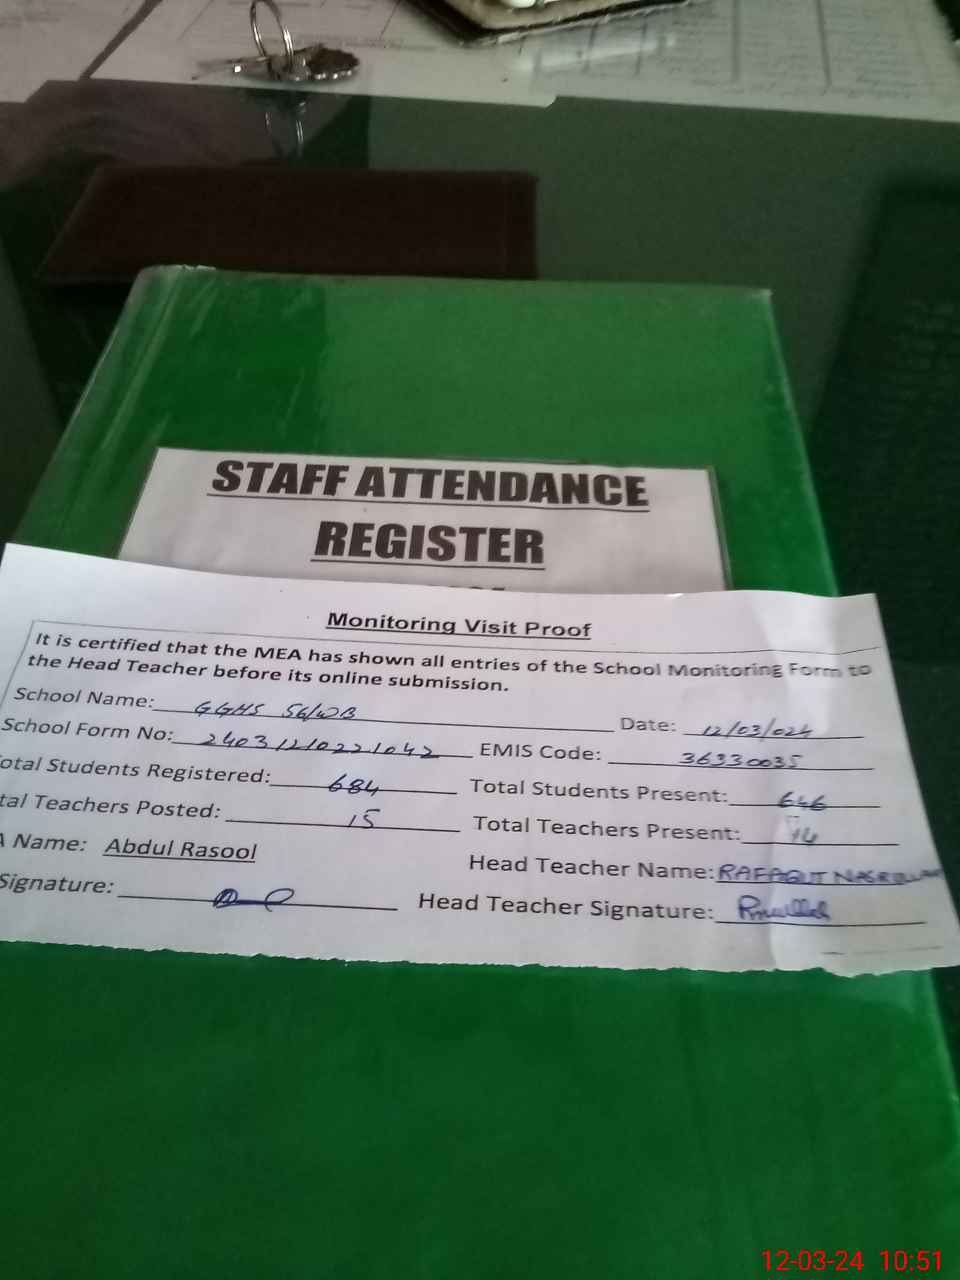 STAFF ATTENDANCE
REGISTER
Monitoring Visit Proof
It is certified that the MEA has shown all entries of the School Monitoring Form to
the Head Teacher before its online submission.
School Name: GGHS 56/WB Date: 12/03/024
School Form No: 2403121022 1042 EMIS Code: 36330035
otal Students Registered: 684 Total Students Present: 646
tal Teachers Posted: 15 Total Teachers Present: 14
A Name: Abdul Rasool Head Teacher Name: RAFAQUT NASRULLAH
Signature: Head Teacher Signature:
12-03-24 10:51